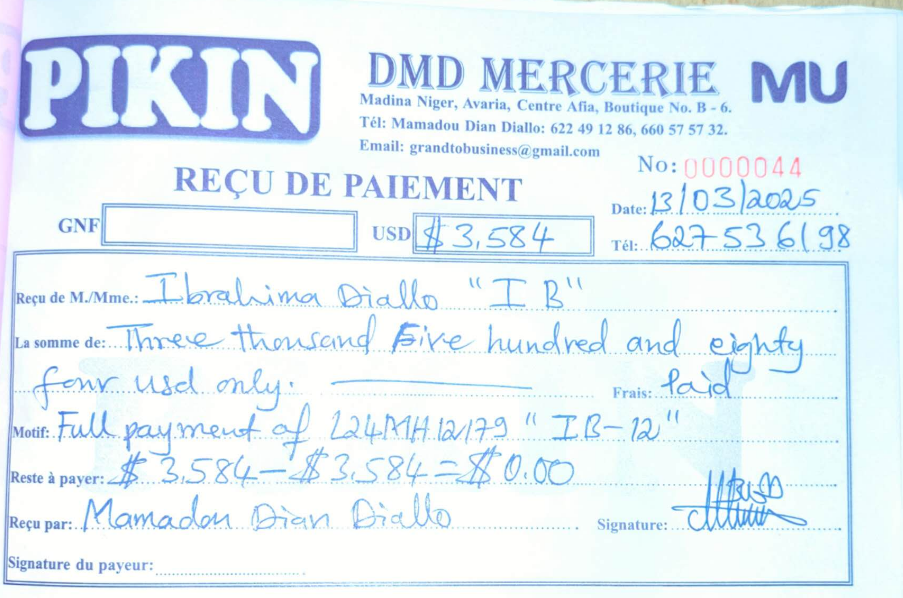 PIKIN
DMD MERCERIE
MU
Madina Niger, Avaria, Centre Afia, Boutique No. B - 6.
Tél: Mamadou Dian Diallo: 622 49 12 86, 660 57 57 32.
Email: grandtobusiness@gmail.com
No: 0000044
REÇU DE PAIEMENT
Date: 13/03/2025
GNF
USD $ 3,584
Tél: 627 53 61 98
Reçu de M./Mme.: Ibrahima Diallo "IB"
La somme de: Three thousand Five hundred and eighty
four usd only.
Frais: Paid
Motif: Full payment of L24MH12179 "IB-12"
Reste à payer: $ 3.584 - $ 3.584 = $ 0.00
Reçu par: Mamadou Dian Diallo
Signature:
Signature du payeur: